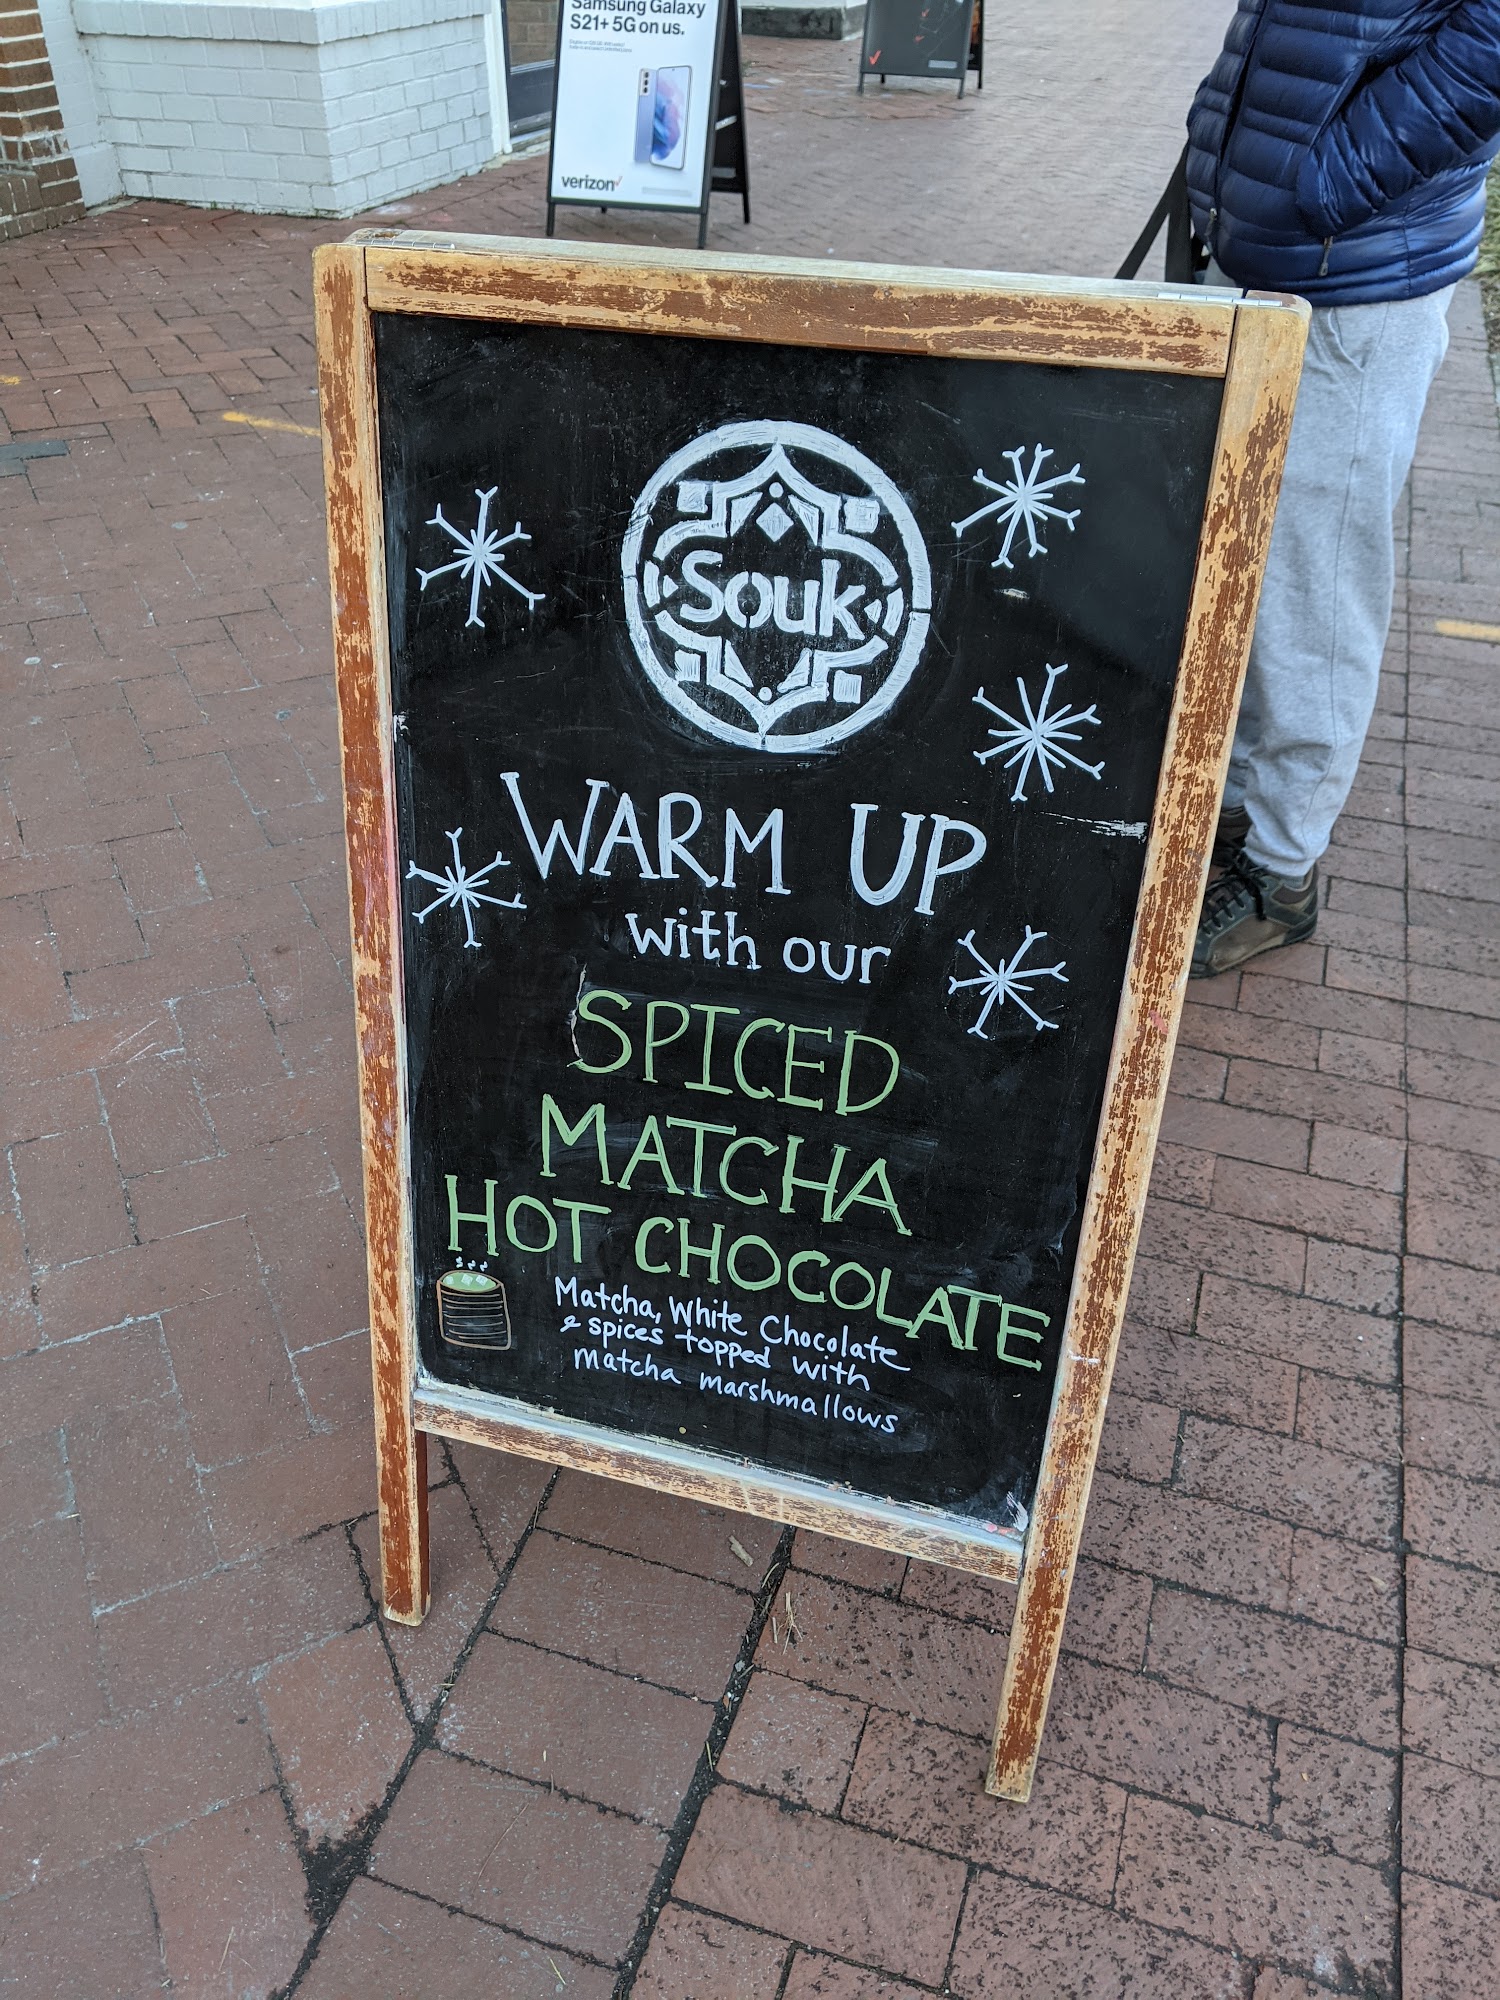 Samsung Galaxy
S21+ 5G on us.
verizon
Souk
WARM UP
with our
SPICED
MATCHA
HOT CHOCOLATE
Matcha, White Chocolate
& spices topped with
matcha marshmallows